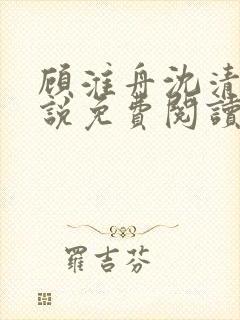 顾淮舟沈清
說免費閱讀
羅吉芬